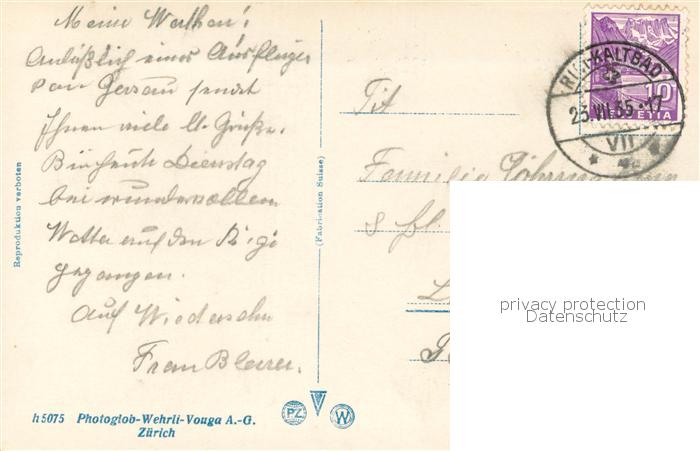 Meine Werthen!
Anläßlich eines Ausfluges
von Gersau sendet
Ihnen viele lb. Grüße.
Bin heute Dienstag
bei wundervollem
Wetter auf den Rigi
gegangen.
Auf Wiedersehn
Frau
Tit
Familie
RIGI-KALTBAD
23.VII.35.-17
VII
10
HELVETIA
Reproduktion verboten
(Fabrication Suisse)
h5075 Photoglob-Wehrli-Vouga A.-G.
Zürich
PZ
W
privacy protection
Datenschutz